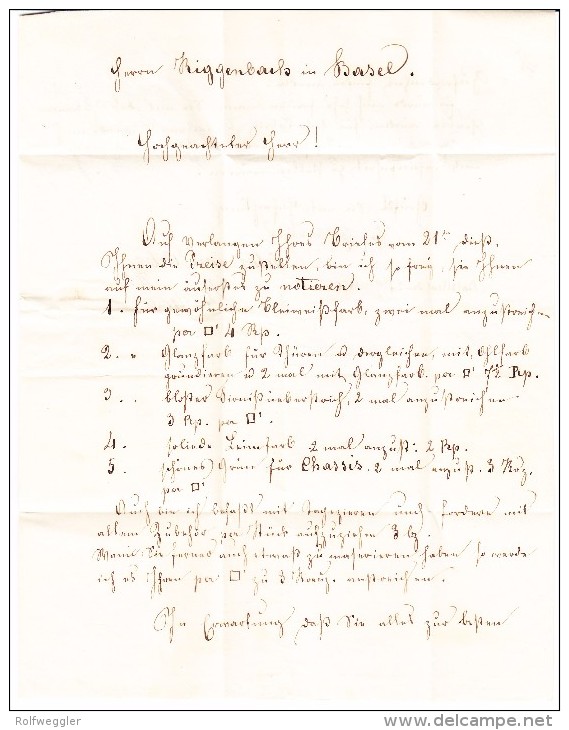 Herrn Riggenbach in Basel.
Hochgeachteter Herr!
Auf Verlangen Ihres Briefes vom 21ten dieß.
Ihnen die Preise zuzustellen, bin ich so frey, sie Ihnen
auf mein äuserstes zu notieren.
1. für gewöhnliche Bleiweißfarb, zwei mal anzustreichen
per □' 4 Rp.
2. " Glanzfarb für Thüren u dergleichen, mit Öhlfarb
grundieren u 2 mal mit Glanzfarb. per □' 7½ Rp.
3. . bloßer 2 mal anzustreichen
3 Rp. per □'.
4. solide Leimfarb 2 mal anzust: 2 Rp.
5. schönes Grün für Chassis. 2 mal anzust. 3 Krz.
per □'
Auch bin ich befaßt mit Tapezieren und fordere mit
allem Zubehör, per Stück aufzuziehen 3 bz.
Wann Sie ferner auch etwas zu maserieren haben, so werde
ich es Ihnen per □' zu 3 Kreuz. anstreichen.
In Erwartung daß Sie alles zur besten
Rolfwegler
www.delcampe.net